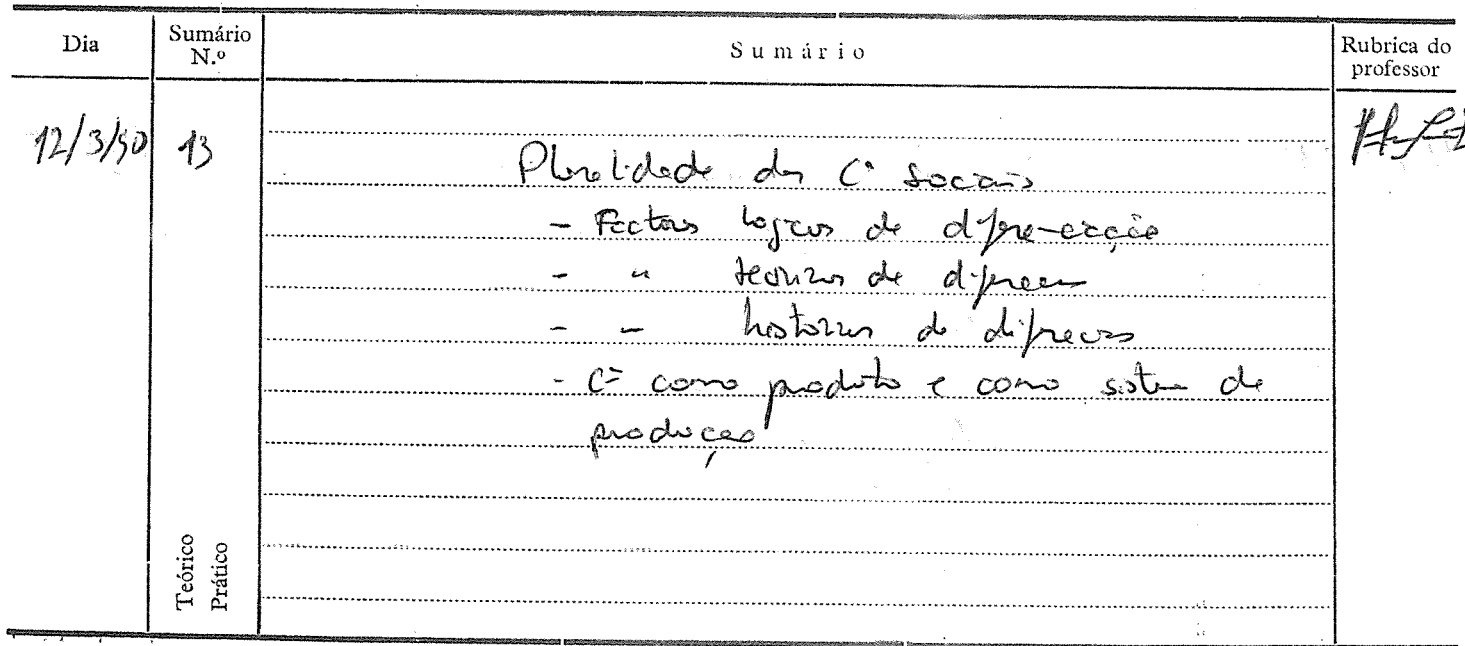 Dia
Sumário N.º
Sumário
Rubrica do professor
12/3/90
13
Pluralidade das Cª sociais
- Factores logicos de diferenciação
- " teoricos de
- - historicos de
- Cª como produto e como sistema de
produção
Teórico
Prático